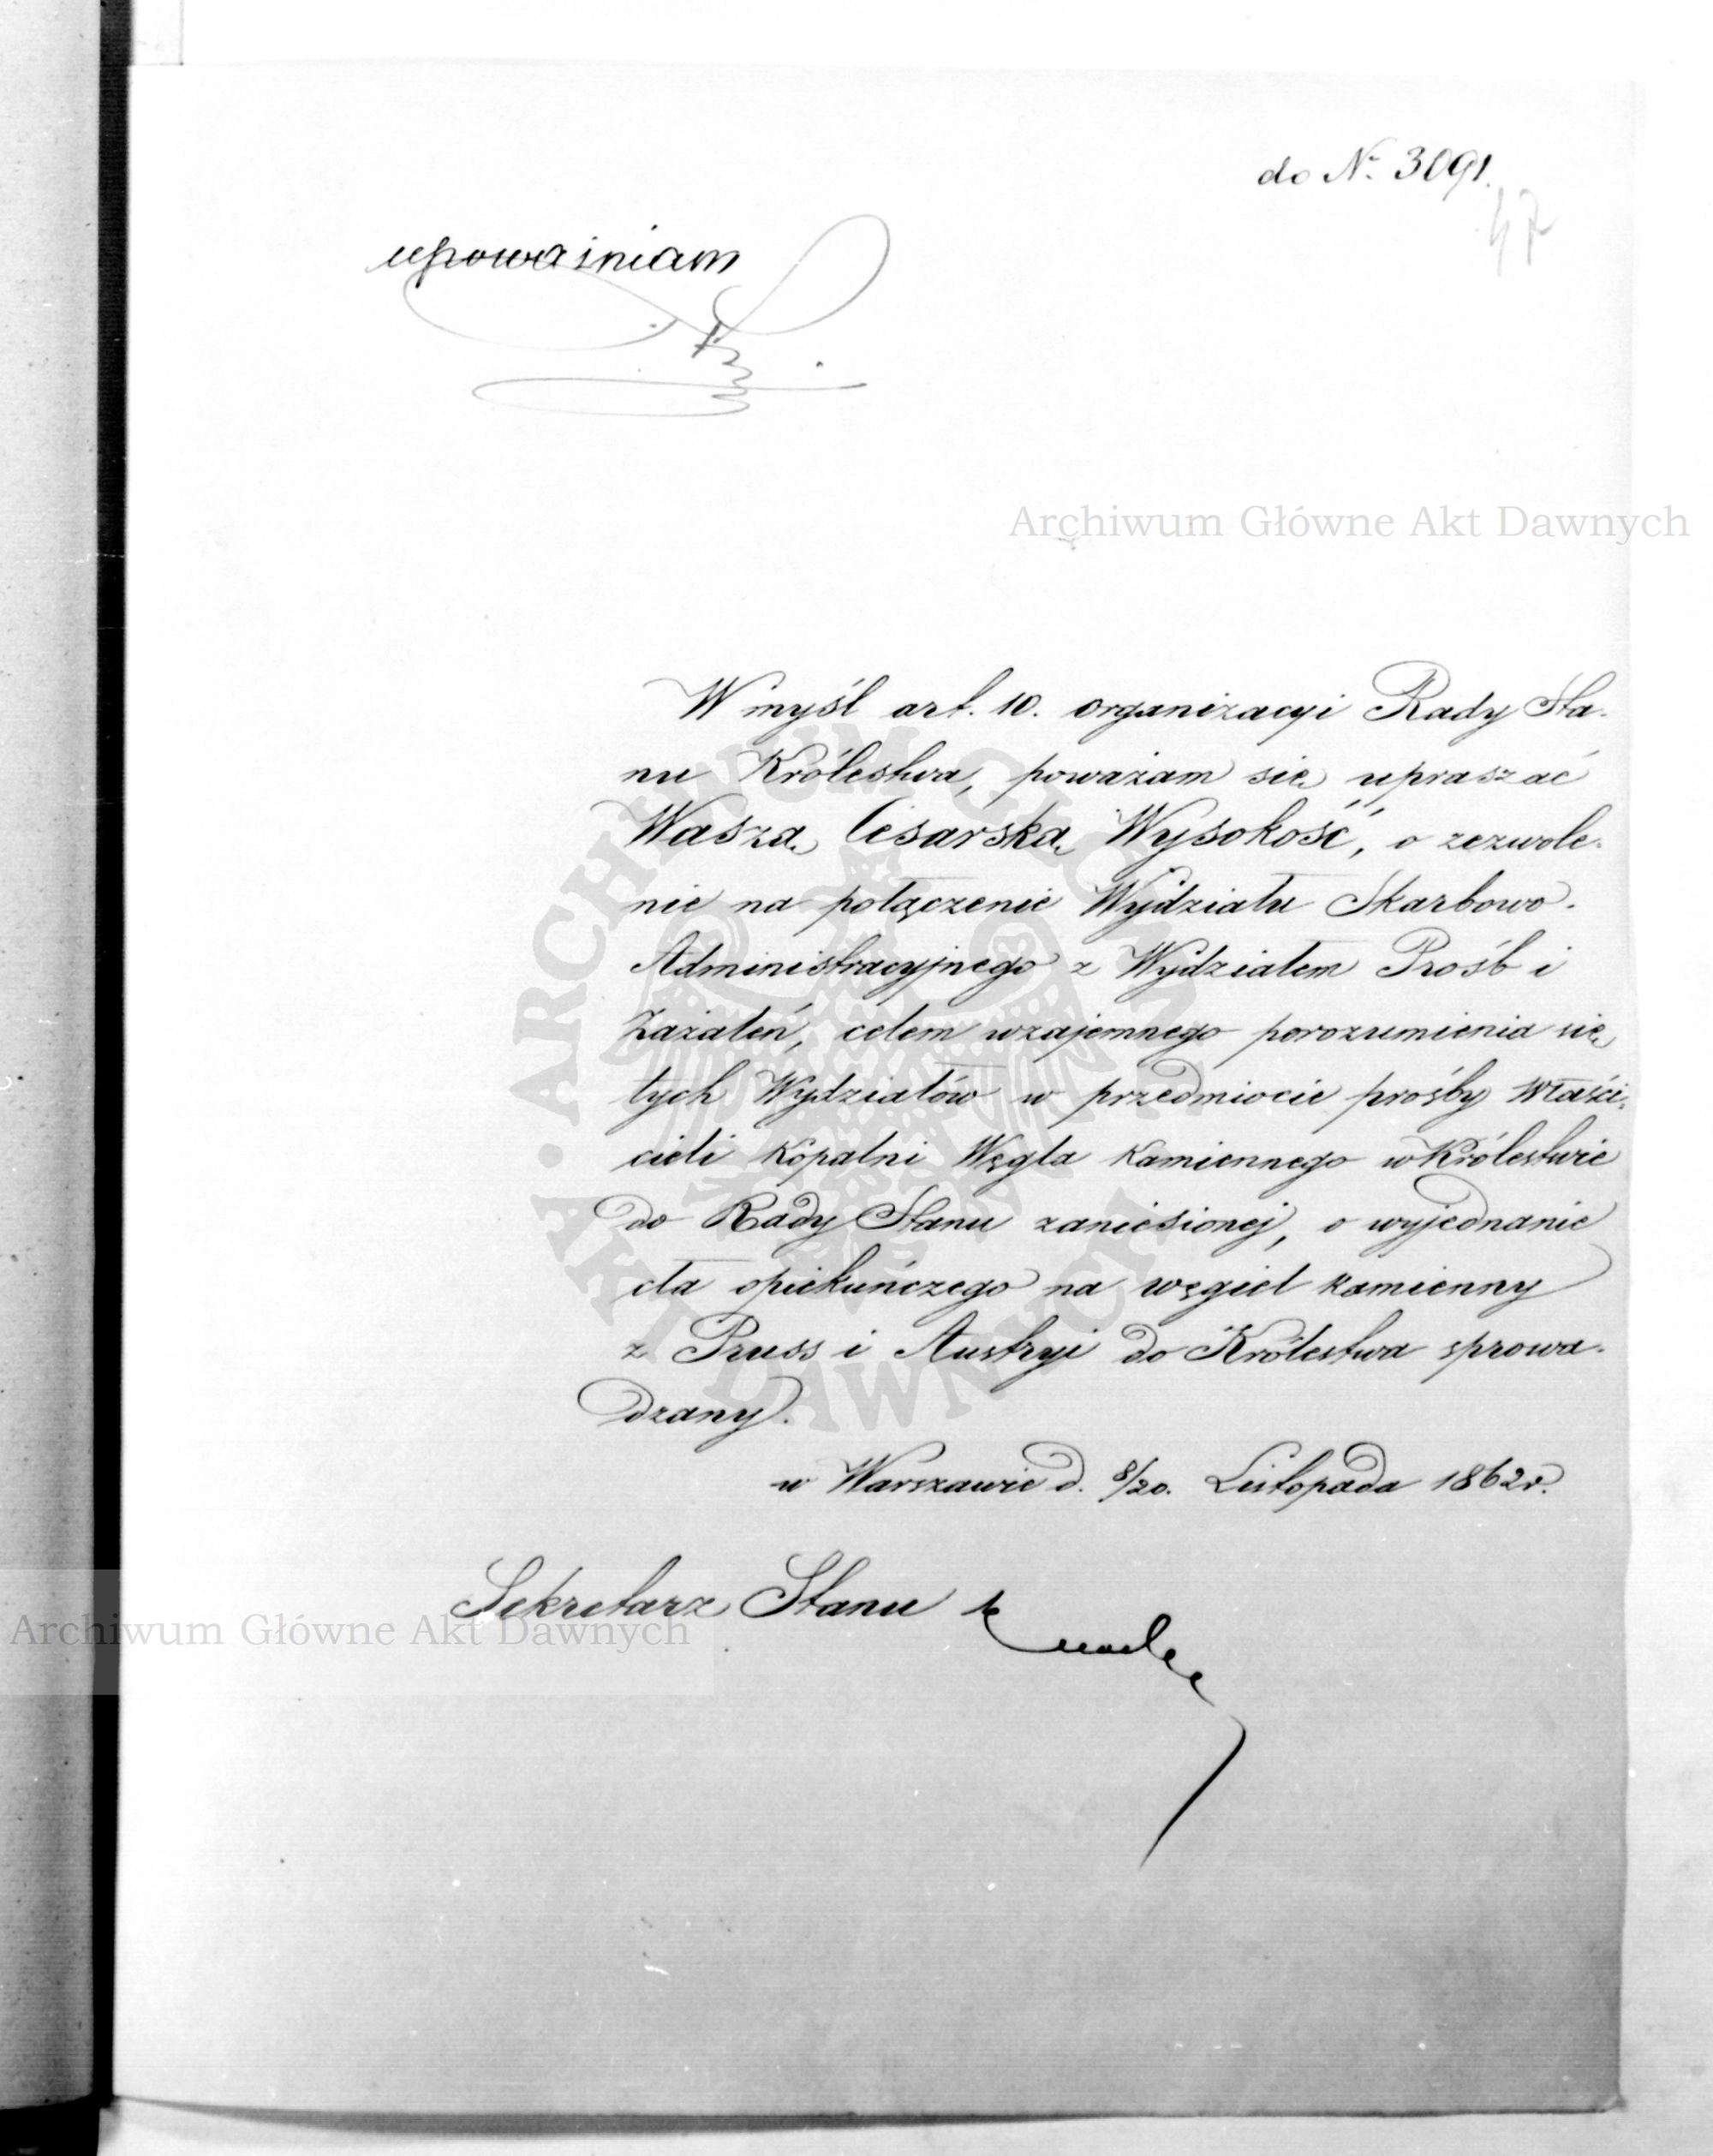 do N. 3091.
47
upoważniam
Archiwum Główne Akt Dawnych
W myśl art. 10. organizacyi Rady Sta-
nu Królestwa, poważam się upraszać
Waszą Cesarską Wysokość, o zezwole-
nie na połączenie Wydziału Skarbowo-
Administracyjnego z Wydziałem Prośb i
Zażaleń, celem wzajemnego porozumienia się
tych Wydziałów w przedmiocie prośby właści-
cieli Kopalni Węgla Kamiennego w Królestwie
do Rady Stanu zaniesionej, o wyjednanie
cła opiekuńczego na węgiel kamienny
z Pruss i Austryi do Królestwa sprowa-
dzany.
w Warszawie d. 8/20. Listopada 1862 r.
Sekretarz Stanu
Archiwum Główne Akt Dawnych
ARCHIWUM GŁÓWNE AKT DAWNYCH